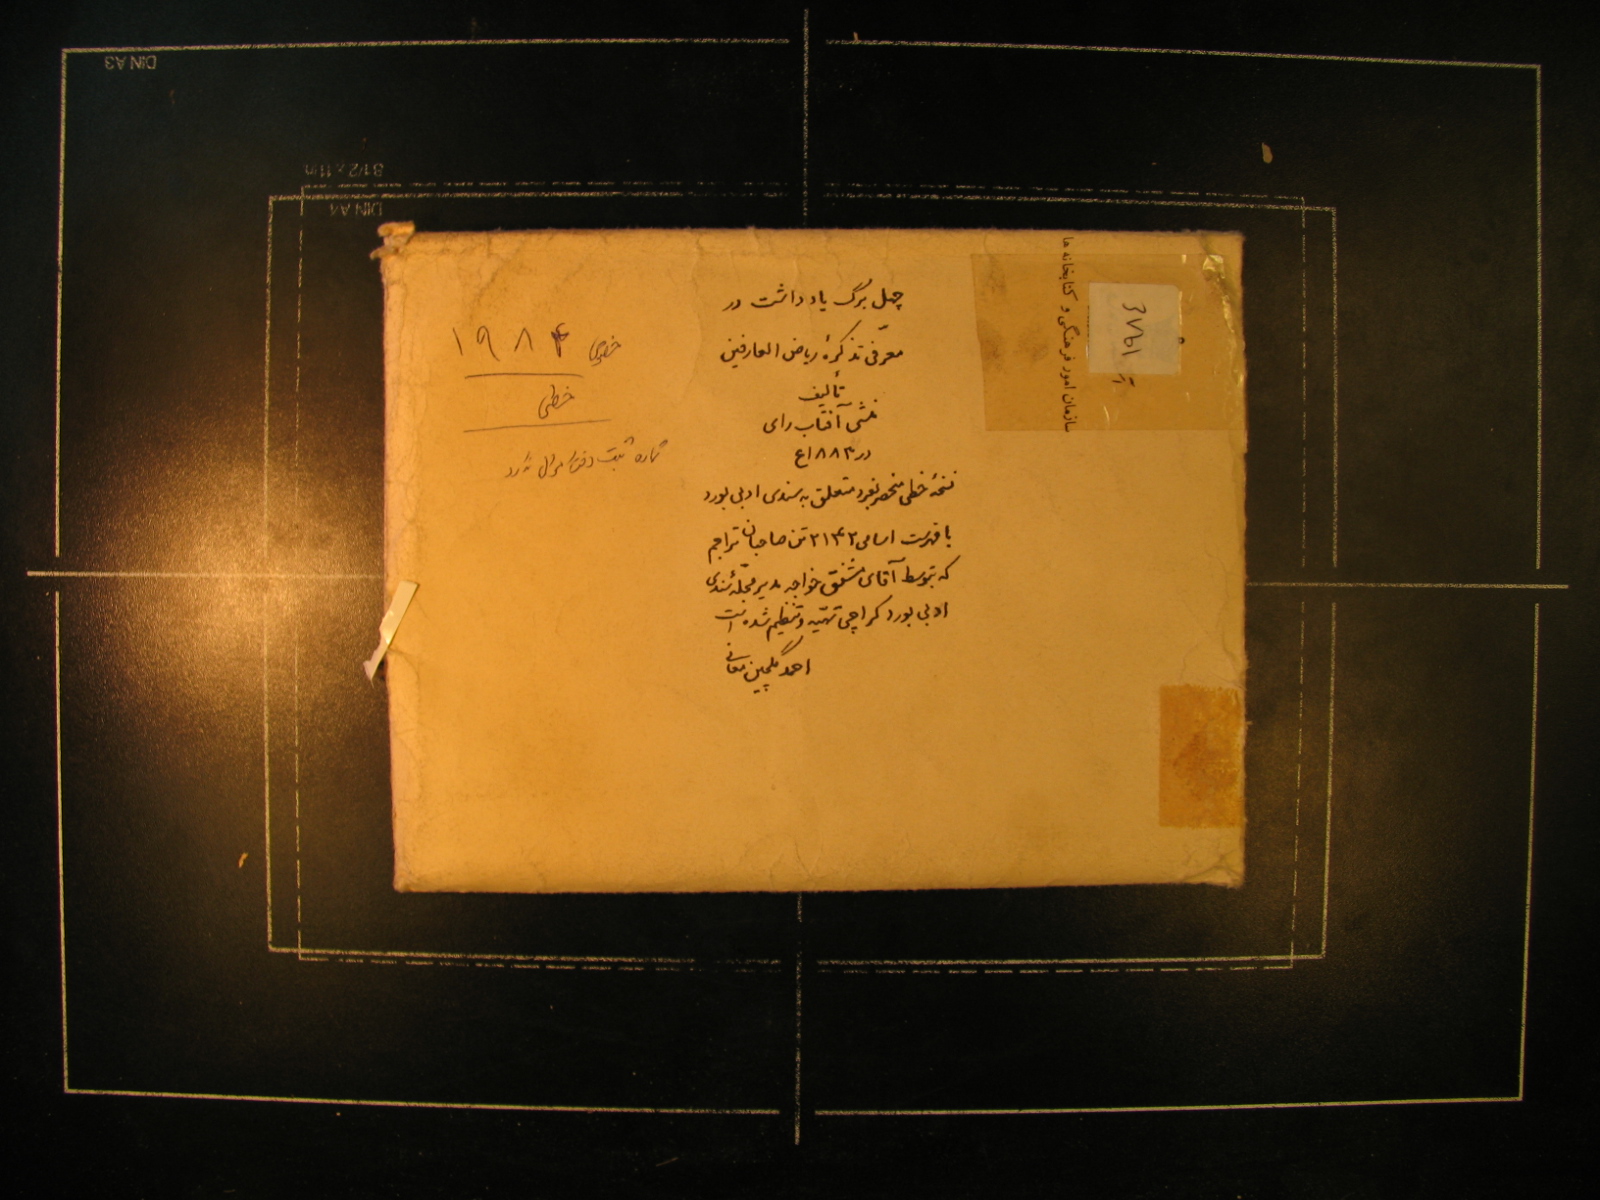 چهل برگ یادداشت در
معرّفی تذکرهٔ ریاض العارفین
تألیف
منشی آفتاب رای
در ۱۸۸۳ع
نسخهٔ خطی منحصر بفرد متعلق به سندی ادبی بورد
با فهرست اسامی ۲۱۴۲ تن صاحبان تراجم
که توسط آقای مشفق خواجه مدیر مجلّهٔ سندی
ادبی بورد کراچی تهیّه و تنظیم شده است
احمد گلچین معانی
۱۹۸۴
خطی
شماره ثبت ندارد
سازمان امور فرهنگی و کتابخانه ها
DIN A3
8 1/2 x 11 in
DIN A4